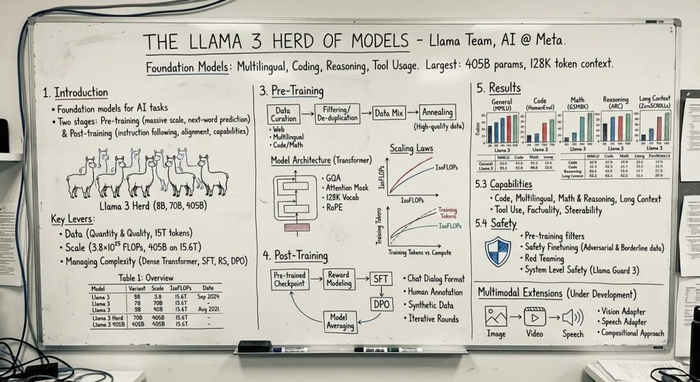 THE LLAMA 3 HERD OF MODELS - Llama Team, AI @ Meta.
Foundation Models: Multilingual, Coding, Reasoning, Tool Usage. Largest: 405B params, 128K token context.
1. Introduction
• Foundation models for AI tasks
• Two stages: Pre-training (massive scale, next-word prediction)
& Post-training (instruction following, alignment, capabilities)
Llama 3 Herd (8B, 70B, 405B)
Key Levers:
• Data (Quantity & Quality, 15T tokens)
• Scale (3.8×10²⁵ FLOPs, 405B on 15.6T)
• Managing Complexity (Dense Transformer, SFT, RS, DPO)
Table 1: Overview
Model Variant Scale IsoFLOPs Date
Llama 3 8B 3.8 15.6T Sep 2024
Llama 3 7B 70B
Llama 3 405 15.6T Aug 2021
Llama 3 Herd 70B 405B 15.6T -
Llama 3 405B 405B 405B 15.6T -
3. Pre-Training
Data Curation
Filtering/ De-duplication
Data Mix
Annealing
(High-quality data)
• Web
• Multilingual
• Code/Math
Model Architecture (Transformer)
• GQA
• Attention Mask
• 128K Vocab
• RoPE
Scaling Laws
IsoFLOPs
IsoFLOPs
IsoFLOPs
Training Tokens
Training Tokens
IsoFLOPs
Training Tokens vs Compute
4. Post-Training
Pre-trained Checkpoint
Reward Modeling
SFT
DPO
Model Averaging
• Chat Dialog Format
• Human Annotation
• Synthetic Data
• Iterative Rounds
5. Results
General (MMLU)
Code (HumanEval)
Math (GSM8K)
Reasoning (ARC)
Long Context (ZeroSCROLLs)
Llama 3
Llama 3
Llama 3
Llama 3
MMLU Code Math Long
5.3 Capabilities
• Code, Multilingual, Math & Reasoning, Long Context
• Tool Use, Factuality, Steerability
5.4 Safety
• Pre-training filters
• Safety Finetuning (Adversarial & Borderline data)
• Red Teaming
• System Level Safety (Llama Guard 3)
Multimodal Extensions (Under Development)
Image
Video
Speech
• Vision Adapter
• Speech Adapter
• Compositional Approach